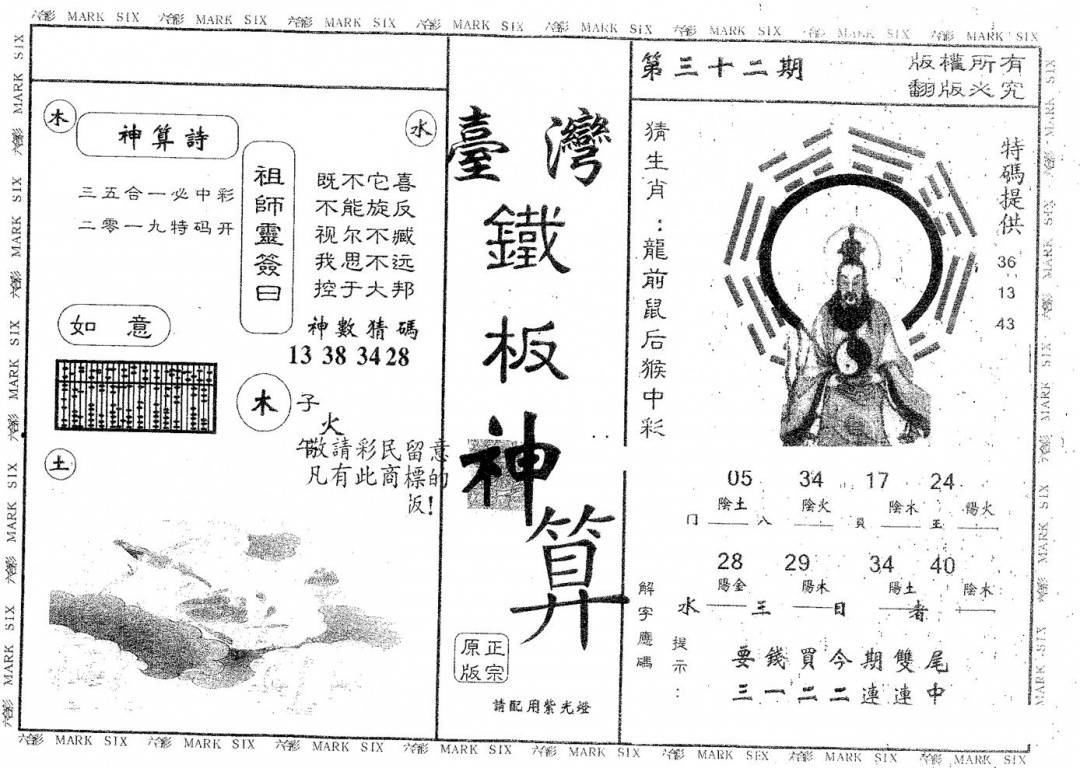 六彩 MARK SIX 六彩 MARK SIX 六彩 MARK SIX 六彩 MARK SIX 六彩 MARK SIX 六彩 MARK SIX 六彩 MARK SIX 六彩 MARK SIX
木
神算詩
三五合一必中彩
二零一九特码开
水
祖師靈簽曰
既不它喜
不能旋反
视尔不臧
我思不远
控于大邦
神數猜碼
13 38 34 28
如意
木
子
火
敬請彩民留意
凡有此商標的
版!
土
臺灣
鐵
板
神
算
正宗
原版
請配用紫光燈
第三十二期
版權所有
翻版必究
猜生肖:龍前鼠后猴中彩
特碼提供
36
13
43
05 34 17 24
陰土 陰火 陰木 陽火
门 八 貝 王
28 29 34 40
陽金 陽木 陽土 陰木
水 王 日 者
解字應碼
提示:
要錢買今期雙尾
三一二二連連中
六彩 MARK SIX 六彩 MARK SIX 六彩 MARK SIX 六彩 MARK SIX 六彩 MARK SIX 六彩 MARK SIX 六彩 MARK SIX 六彩 MARK SIX